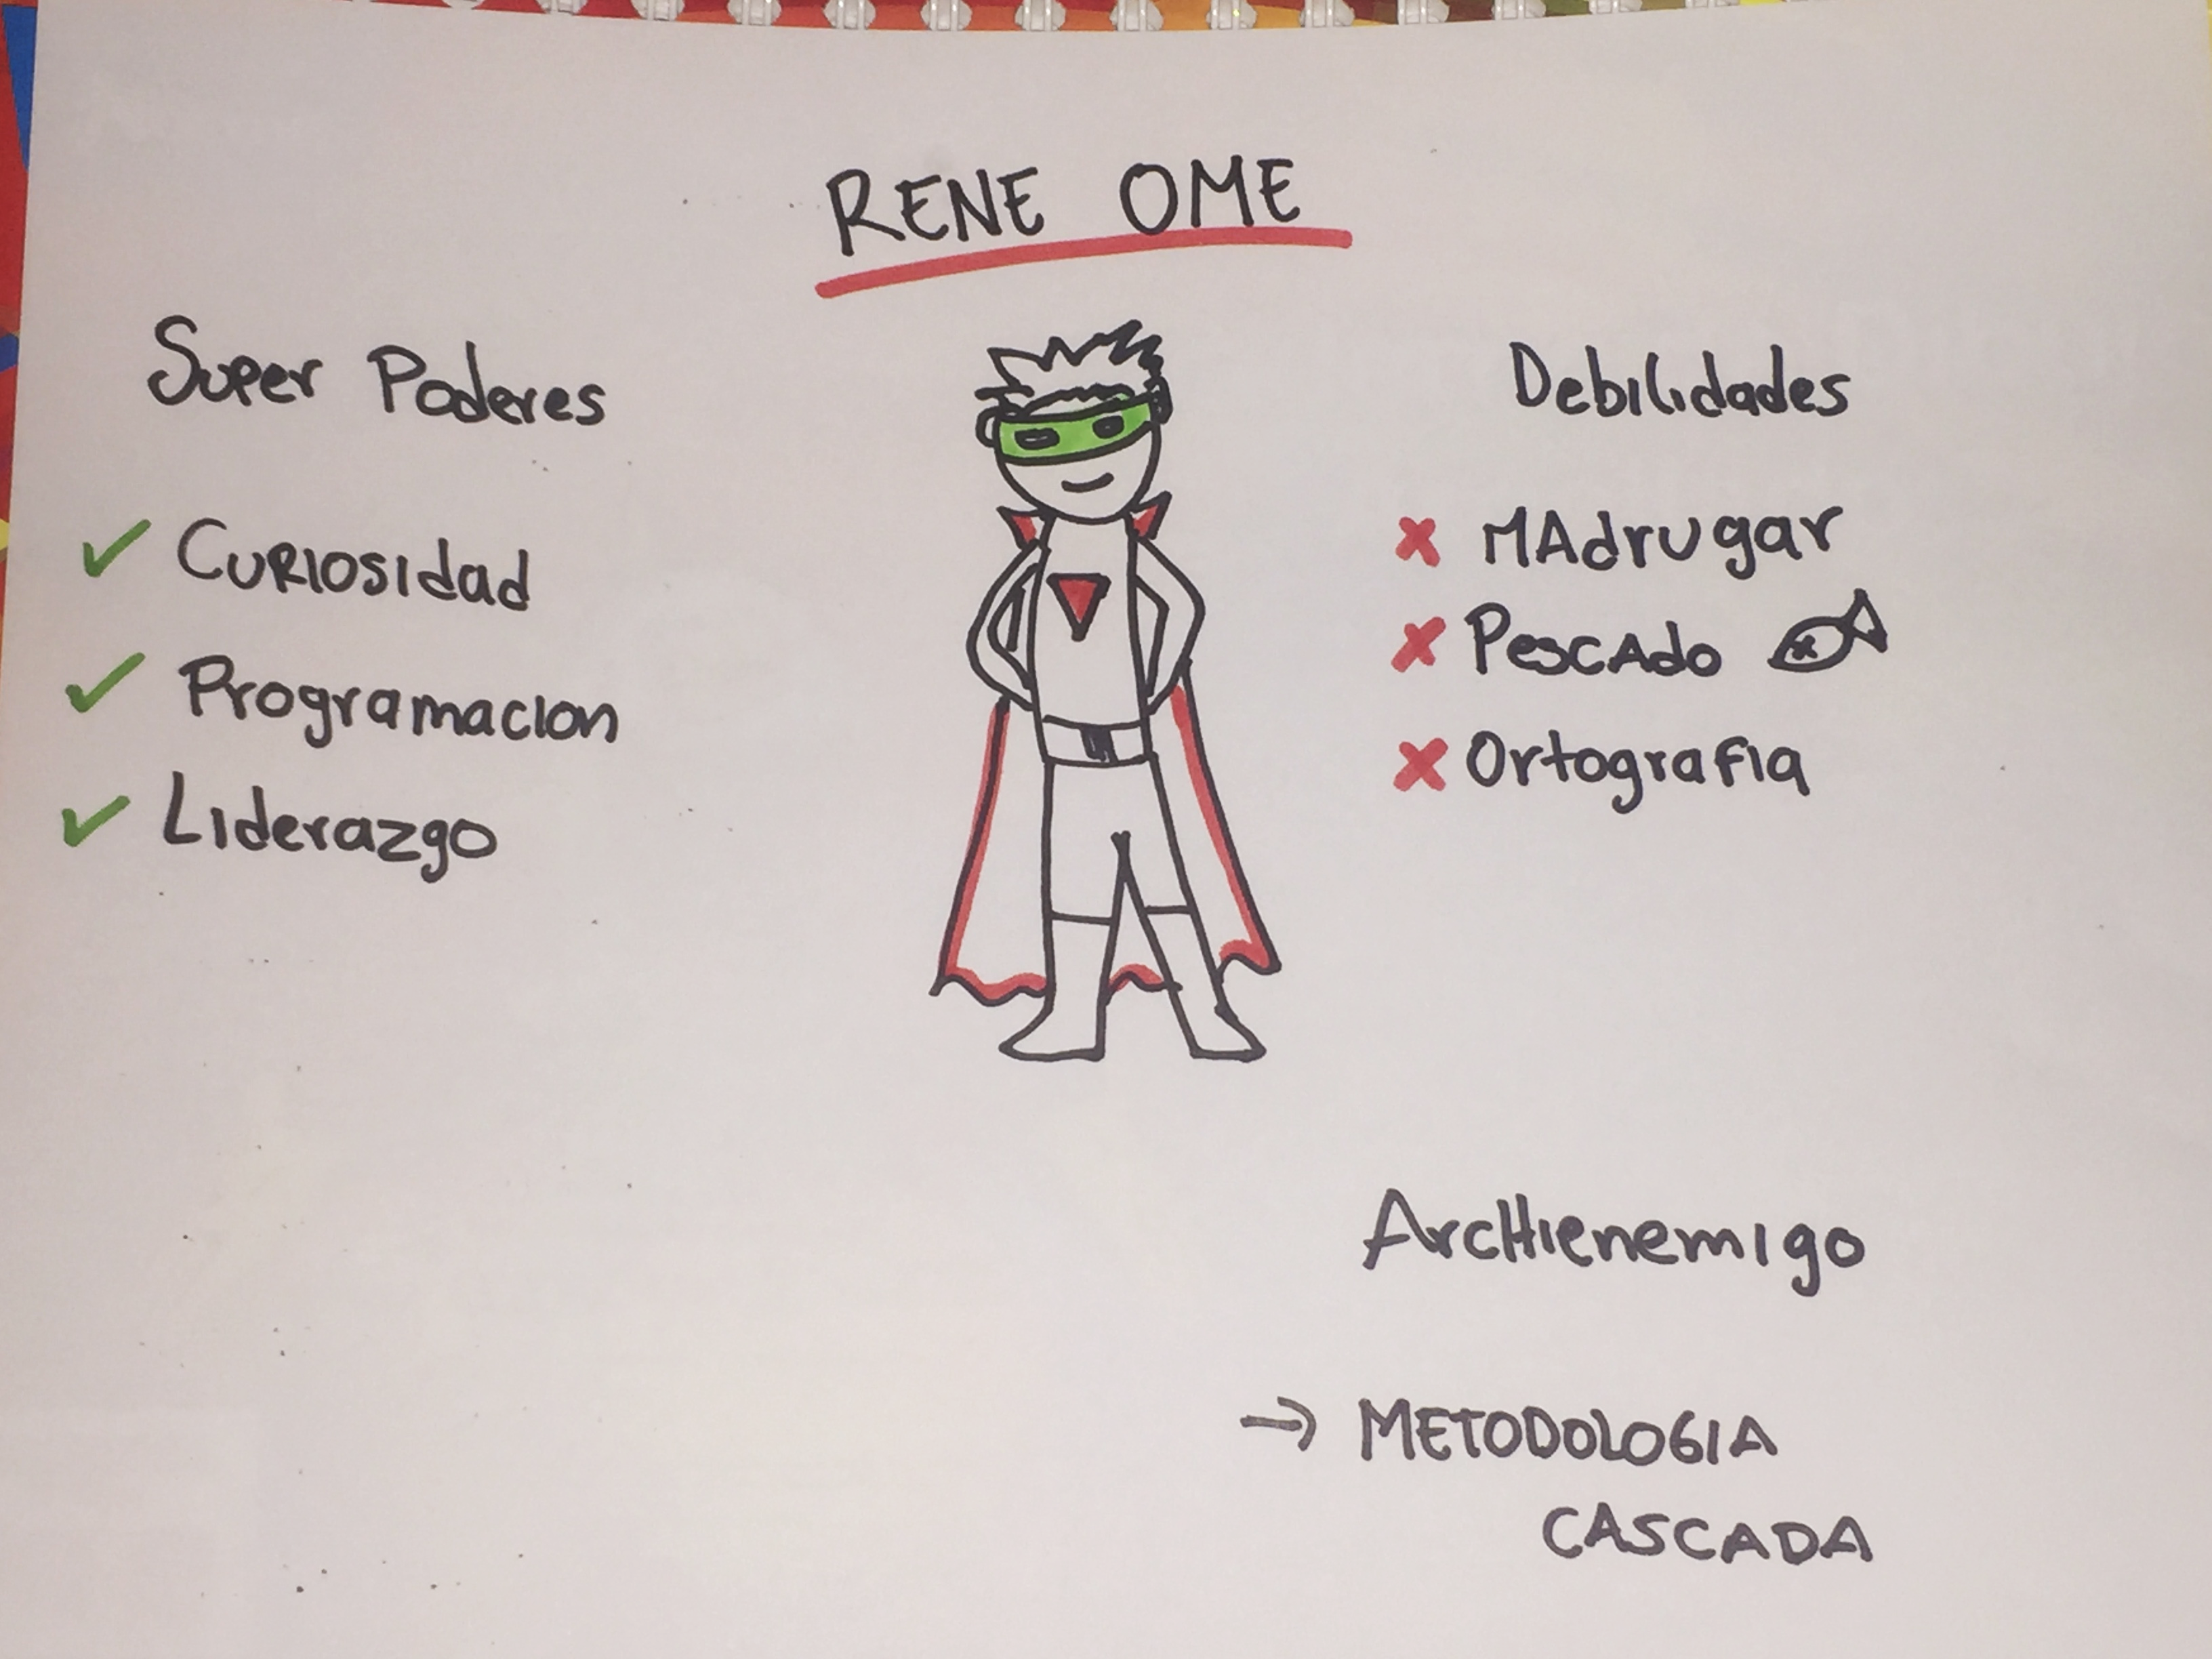 RENE OME
Super Poderes
Curiosidad
Programacion
Liderazgo
Debilidades
MAdrugar
PescAdo
Ortografia
ArcHienemigo
→ METODOLOGIA
CASCADA